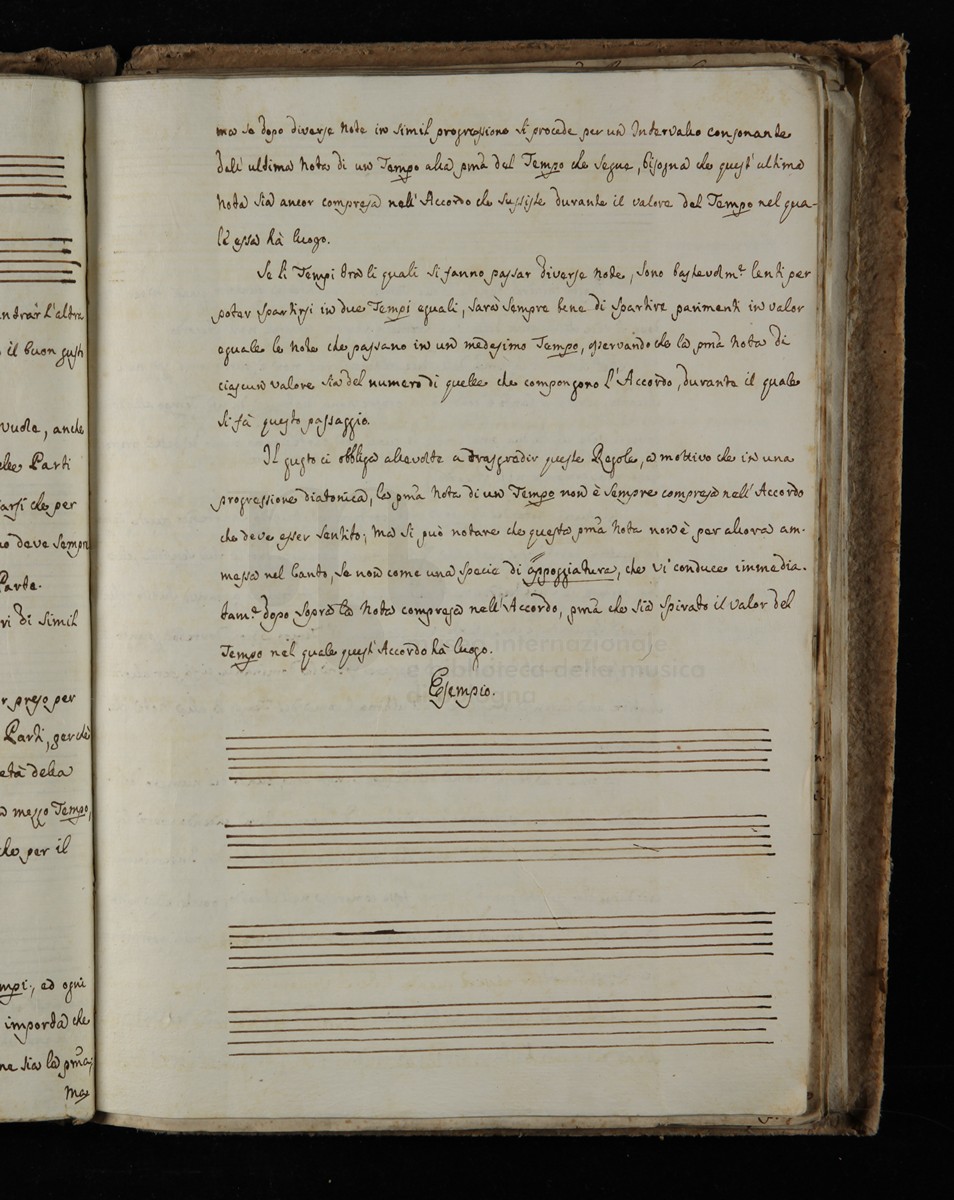 ma se dopo diverse Note in simil progressione si procede per un Intervallo consonante
dall' ultima Nota di un Tempo alla pma del Tempo che segue, bisogna che quest' ultima
Nota sia ancor compresa nell' Accordo che sussiste durante il valore del Tempo nel qua-
l'è essa hà luogo.
Se li Tempi tra li quali si fanno passar diverse note, sono bastevolmte lenti per
poter spartirsi in due Tempi eguali, sarà sempre bene di spartire parimenti in valor
eguale le Note che passano in un medesimo Tempo, osservando che la pma Nota di
ciascun valore sia del numero di quelle che compongono l'Accordo, durante il quale
si fà questo passaggio.
Il gusto ci obbliga allevolte a trasgredir queste Regole, a mottivo che in una
progressione diatonica, la pma Nota di un Tempo non è sempre compresa nell' Accordo
che deve esser sentito; ma si può notare che questa pma Nota non è per allora am-
messa nel Canto, se non come una specie di appoggiatura, che vi conduce immedia-
tamte dopo sopra la Nota compresa nell' Accordo, pma che sia spirato il valor del
Tempo nel quale quest' Accordo hà luogo.
Esempio.
ntrar l'altra
il buon gusto
vuole, anche
elle Parti
arsi che per
no deve sempre
Parte.
ri di simil
r preso per
Parti, perchè
età della
a mezzo Tempo,
che per il
mpi., ad ogni
importa che
ne sia la pma;
Ma
museo internazionale
e biblioteca della musica
di bologna